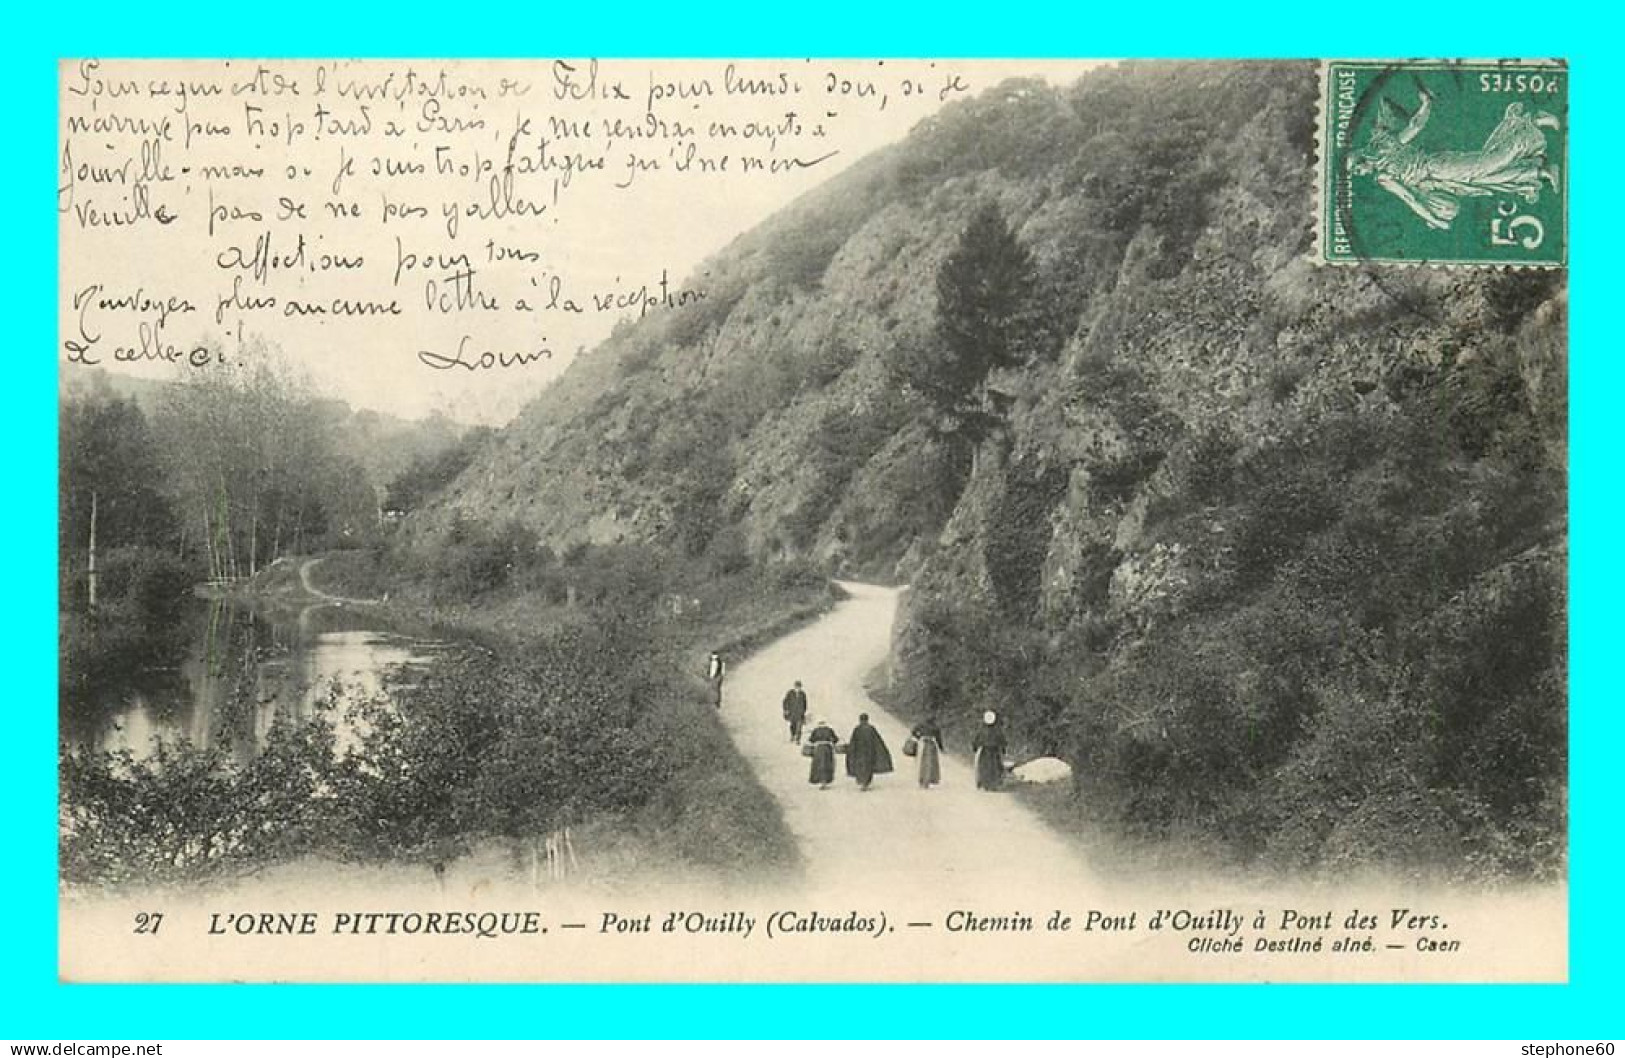 Pour ce qui est de l'invitation de Felix pour lundi soir, si je
n'arrive pas trop tard à Paris, je me rendrai
Joinville, mais si je suis trop fatigué qu'il ne m'en
veuille pas de ne pas y aller!
Affections pour tous
N'envoyez plus aucune lettre à la réception
de celle-ci!
Louis
REPUBLIQUE FRANÇAISE
POSTES
5c
27 L'ORNE PITTORESQUE. — Pont d'Ouilly (Calvados). — Chemin de Pont d'Ouilly à Pont des Vers.
Cliché Destiné aîné. — Caen
Delcampe.net
stephone60